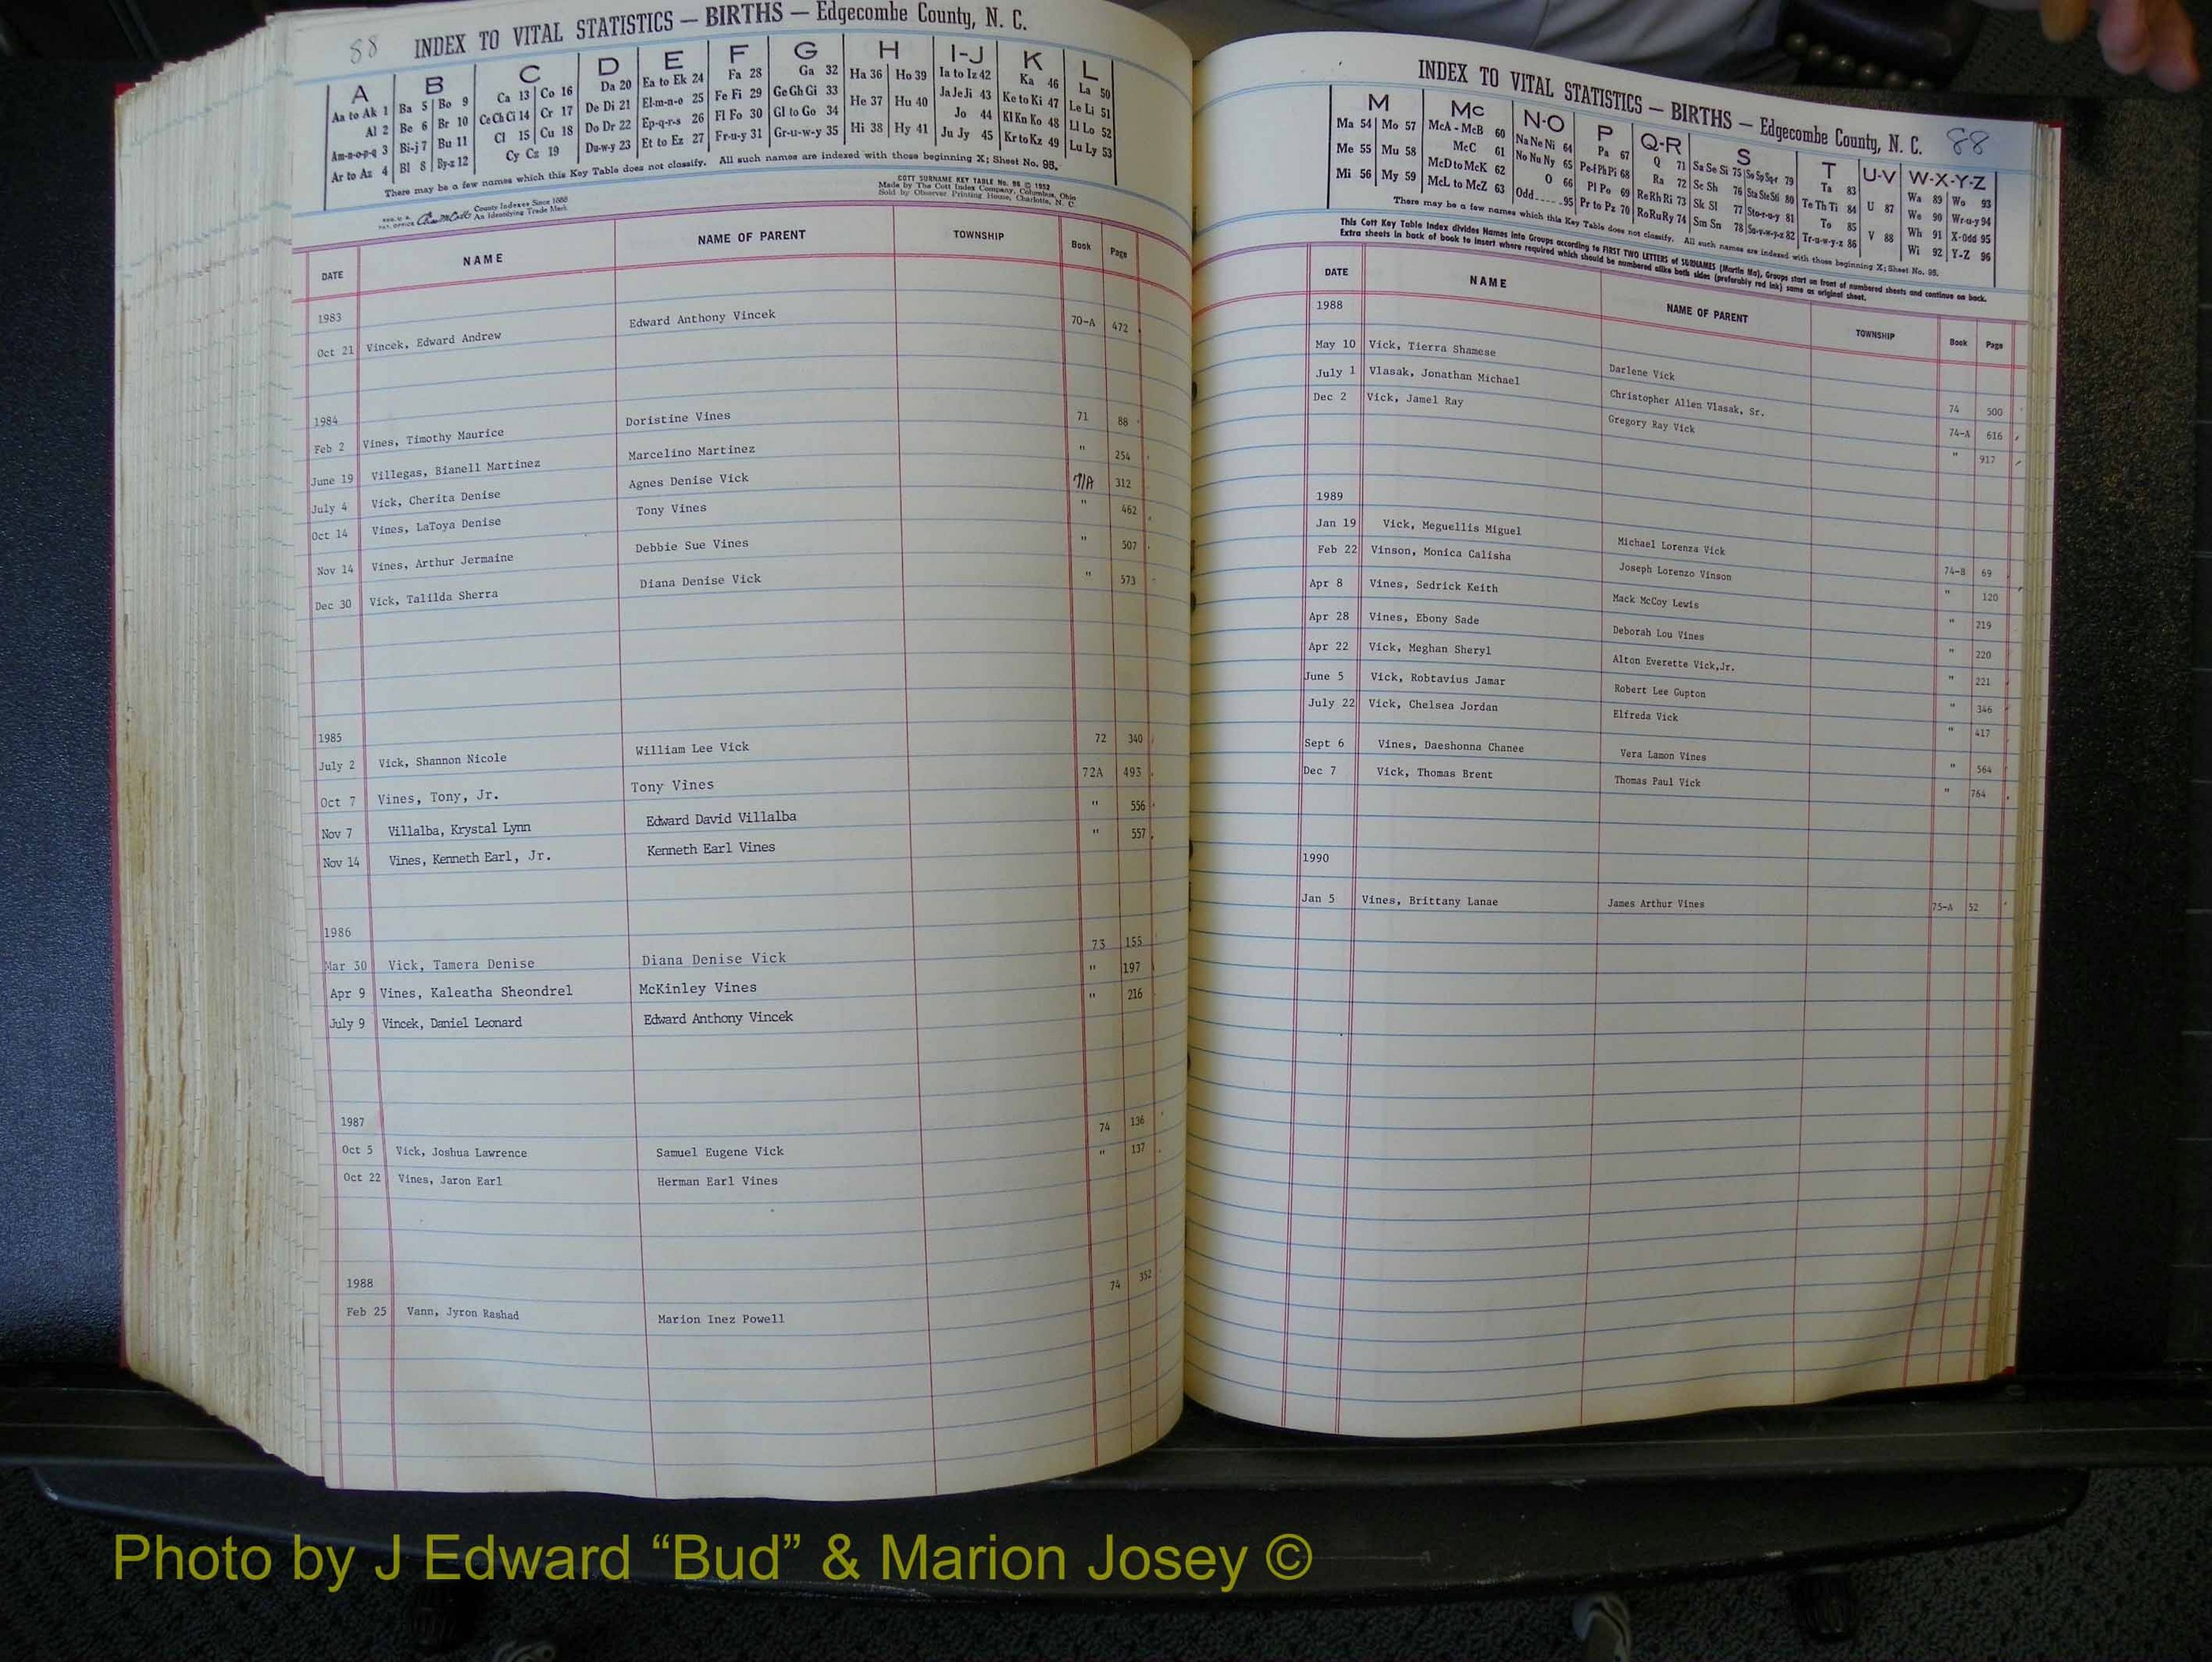 88 INDEX TO VITAL STATISTICS — BIRTHS — Edgecombe County, N. C.
A B C D E F G H I-J K L
Aa to Ak 1 Ba 5 Bo 9 Ca 13 Co 16 Da 20 Ea to Ek 24 Fa 28 Ga 32 Ha 36 Ho 39 Ia to Iz 42 Ka 46 La 50
Al 2 Be 6 Br 10 Ce Ch Ci 14 Cr 17 De Di 21 El-m-n-o 25 Fe Fi 29 Ge Gh Gi 33 He 37 Hu 40 Ja Je Ji 43 Ke to Ki 47 Le Li 51
Am-n-o-p-q 3 Bi-j 7 Bu 11 Cl 15 Cu 18 Do Dr 22 Ep-q-r-s 26 Fl Fo 30 Gl to Go 34 Hi 38 Hy 41 Jo 44 Kl Kn Ko 48 Ll Lo 52
Ar to Az 4 Bl 8 By-z 12 Cy Cz 19 Du-w-y 23 Et to Ez 27 Fr-u-y 31 Gr-u-w-y 35 Ju Jy 45 Kr to Kz 49 Lu Ly 53
There may be a few names which this Key Table does not classify. All such names are indexed with those beginning X; Sheet No. 95.
County Indexes Since 1888
An Identifying Trade Mark
COTT SURNAME KEY TABLE No. 96 © 1952
Made by The Cott Index Company, Columbus, Ohio
Sold by Observer Printing House, Charlotte, N. C.
DATE NAME NAME OF PARENT TOWNSHIP Book Page
1983
Oct 21 Vincek, Edward Andrew Edward Anthony Vincek 70-A 472
1984
Feb 2 Vines, Timothy Maurice Doristine Vines 71 88
June 19 Villegas, Bianell Martinez Marcelino Martinez " 254
July 4 Vick, Cherita Denise Agnes Denise Vick 71A 312
Oct 14 Vines, LaToya Denise Tony Vines " 462
Nov 14 Vines, Arthur Jermaine Debbie Sue Vines " 507
Dec 30 Vick, Talilda Sherra Diana Denise Vick " 573
1985
July 2 Vick, Shannon Nicole William Lee Vick 72 340
Oct 7 Vines, Tony, Jr. Tony Vines 72A 493
Nov 7 Villalba, Krystal Lynn Edward David Villalba " 556
Nov 14 Vines, Kenneth Earl, Jr. Kenneth Earl Vines " 557
1986
Mar 30 Vick, Tamera Denise Diana Denise Vick 73 155
Apr 9 Vines, Kaleatha Sheondrel McKinley Vines " 197
July 9 Vincek, Daniel Leonard Edward Anthony Vincek " 216
1987
Oct 5 Vick, Joshua Lawrence Samuel Eugene Vick 74 136
Oct 22 Vines, Jaron Earl Herman Earl Vines " 137
1988
Feb 25 Vann, Jyron Rashad Marion Inez Powell 74 352
INDEX TO VITAL STATISTICS — BIRTHS — Edgecombe County, N. C. 88
M Mc N-O P Q-R S T U-V W-X-Y-Z
Ma 54 Mo 57 McA - McB 60 Na Ne Ni 64 Pa 67 Q 71 Sa Se Si 75 So Sp Sq-r 79 Ta 83 U 87 Wa 89 Wo 93
Me 55 Mu 58 McC 61 No Nu Ny 65 Pe-f Ph Pi 68 Ra 72 Sc Sh 76 Sta Ste Sti 80 Te Th Ti 84 V 88 We 90 Wr-u-y 94
Mi 56 My 59 McD to McK 62 O 66 Pl Po 69 Re Rh Ri 73 Sk Sl 77 Sto-r-u-y 81 To 85 Wh 91 X-Odd 95
McL to McZ 63 Odd 95 Pr to Pz 70 Ro Ru Ry 74 Sm Sn 78 Su-v-w-y-z 82 Tr-u-w-y-z 86 Wi 92 Y-Z 96
There may be a few names which this Key Table does not classify. All such names are indexed with those beginning X; Sheet No. 95.
This Cott Key Table Index divides Names into Groups according to FIRST TWO LETTERS of SURNAMES (Martin Ma). Groups start on front of numbered sheets and continue on back.
Extra sheets in back of book to insert where required which should be numbered alike both sides (preferably red ink) same as original sheet.
DATE NAME NAME OF PARENT TOWNSHIP Book Page
1988
May 10 Vick, Tierra Shamese Darlene Vick 74 500
July 1 Vlasak, Jonathan Michael Christopher Allen Vlasak, Sr. 74-A 616
Dec 2 Vick, Jamel Ray Gregory Ray Vick " 917
1989
Jan 19 Vick, Meguellis Miguel Michael Lorenza Vick 74-B 69
Feb 22 Vinson, Monica Calisha Joseph Lorenzo Vinson " 120
Apr 8 Vines, Sedrick Keith Mack McCoy Lewis " 219
Apr 28 Vines, Ebony Sade Deborah Lou Vines " 220
Apr 22 Vick, Meghan Sheryl Alton Everette Vick,Jr. " 221
June 5 Vick, Robtavius Jamar Robert Lee Gupton " 346
July 22 Vick, Chelsea Jordan Elfreda Vick " 417
Sept 6 Vines, Daeshonna Chanee Vera Lamon Vines " 564
Dec 7 Vick, Thomas Brent Thomas Paul Vick " 764
1990
Jan 5 Vines, Brittany Lanae James Arthur Vines 75-A 52
Photo by J Edward “Bud” & Marion Josey ©